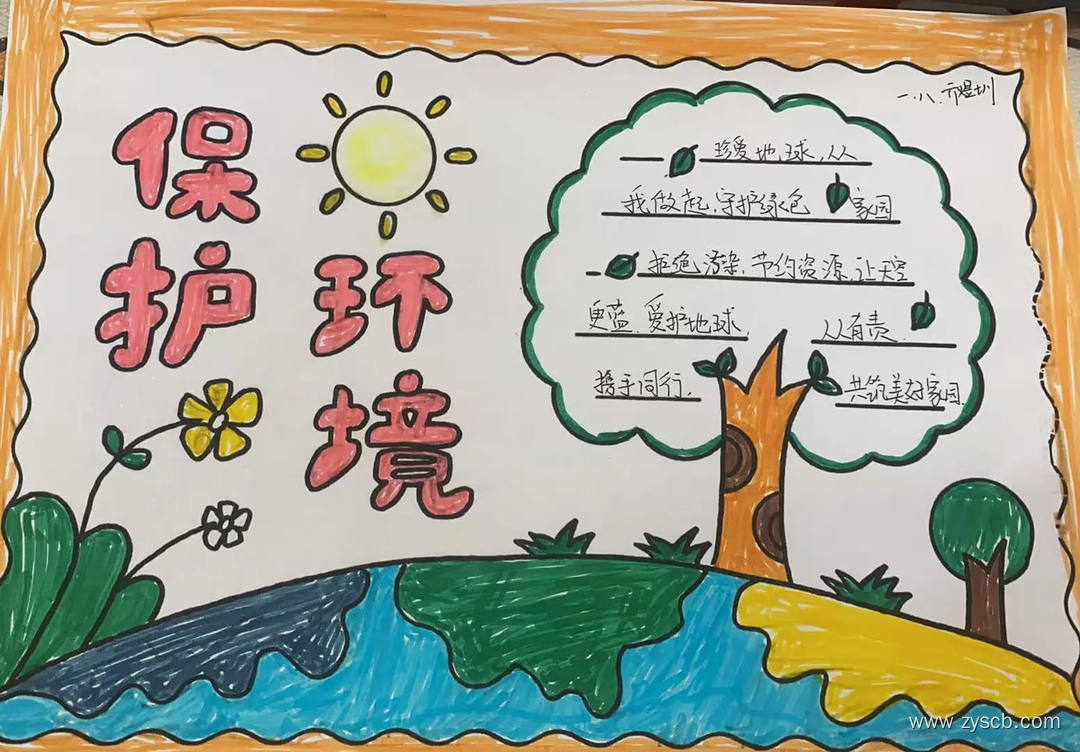 保护
环境
一.八.亓煜圳
珍爱地球,从
我做起,守护绿色 家园
拒绝污染,节约资源,让天空
更蓝,爱护地球, 人人有责
携手同行, 共筑美好家园.
www.zyscb.com